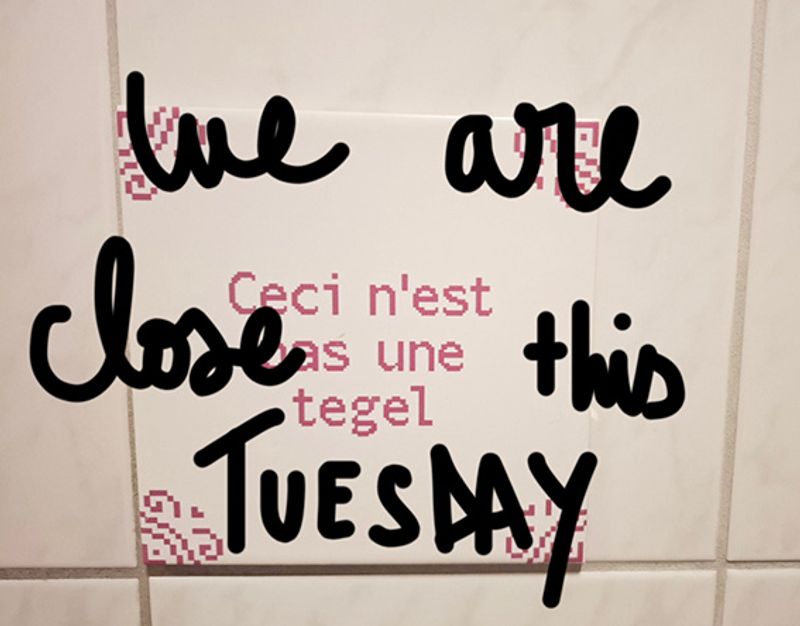 We are
Ceci n'est
close this
pas une
tegel
TUESDAY